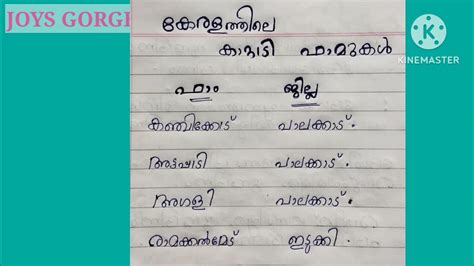 JOYS GORGE
KINEMASTER
കേരളത്തിലെ
കാറ്റാടി ഫാമുകൾ
ഫാം ജില്ല
കഞ്ചിക്കോട് പാലക്കാട്.
അട്ടപ്പാടി പാലക്കാട്.
അഗളി പാലക്കാട്.
രാമക്കൽമേട് ഇടുക്കി.